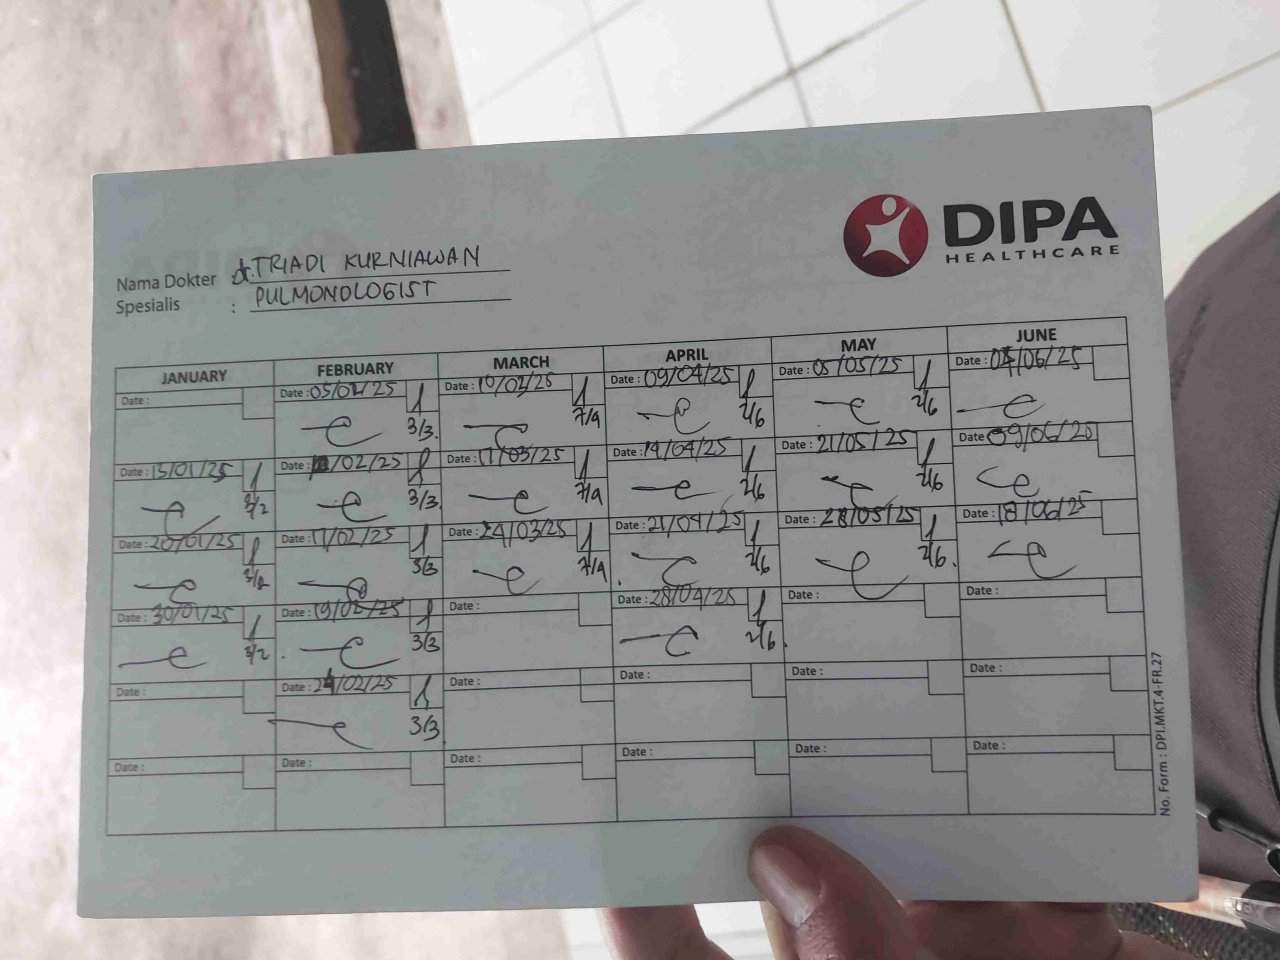 DIPA
HEALTHCARE
Nama Dokter : dr. TRIADI KURNIAWAN
Spesialis : PULMONOLOGIST
JANUARY FEBRUARY MARCH APRIL MAY JUNE
Date : Date : 05/02/25 Date : 10/03/25 Date : 09/04/25 Date : 05/05/25 Date : 04/06/25
3/3. 7/4 2/6 2/6
Date : 15/01/25 Date : /02/25 Date : 17/03/25 Date : 14/04/25 Date : 21/05/25 Date : 09/06/25
3/2 3/3 7/4 2/6 2/6
Date : 20/01/25 Date : 17/02/25 Date : 24/03/25 Date : 21/04/25 Date : 28/05/25 Date : 18/06/25
3/2 3/3 7/4 2/6 2/6.
Date : 30/01/25 Date : 19/02/25 Date : Date : 28/04/25 Date : Date :
3/2 3/3 2/6
Date : Date : 24/02/25 Date : Date : Date : Date :
3/3
Date : Date : Date : Date : Date : Date :
No. Form : DPI.MKT.4-FR.27